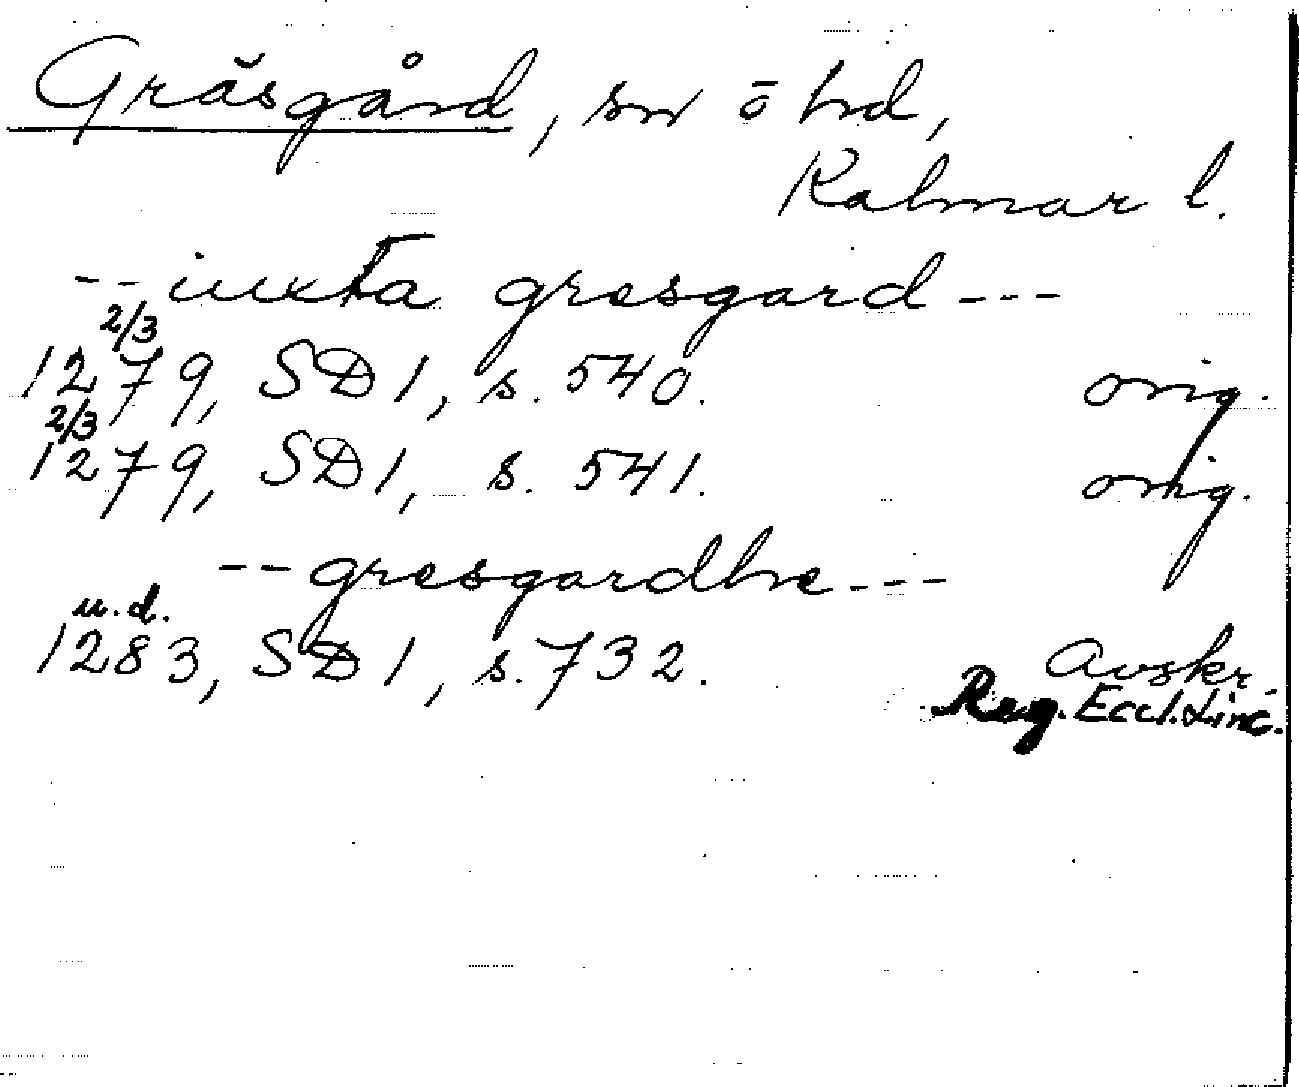 Gräsgård, sn ö hd,
Kalmar l.
-- iuxta gresgard ---
2/3
1279, SD 1, s. 540. orig.
2/3
1279, SD 1, s. 541. orig.
-- gresgardhe ---
u.d.
1283, SD 1, s. 732. Avskr.
Reg. Eccl. Linc.